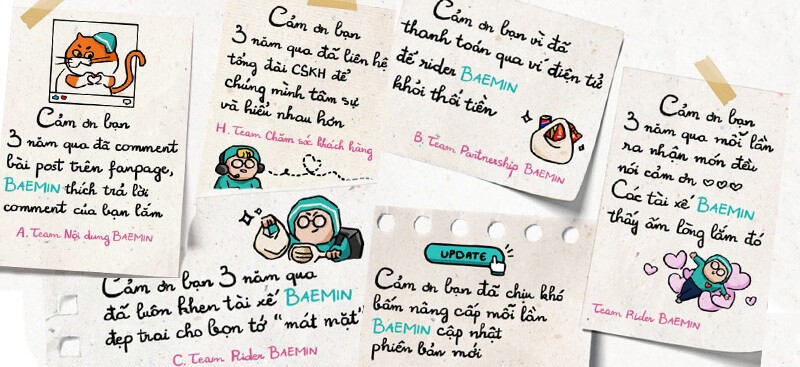 Cảm ơn bạn
3 năm qua đã comment
bài post trên fanpage,
BAEMIN thích trả lời
comment của bạn lắm
A. Team Nội dung BAEMIN
Cảm ơn bạn
3 năm qua đã liên hệ
tổng đài CSKH để
chúng mình tâm sự
và hiểu nhau hơn
H. Team Chăm sóc khách hàng
Cảm ơn bạn vì đã
thanh toán qua ví điện tử
để rider BAEMIN
khỏi thối tiền
B. Team Partnership BAEMIN
Cảm ơn bạn
3 năm qua mỗi lần
ra nhận món đều
nói cảm ơn ♡♡♡
Các tài xế BAEMIN
thấy ấm lòng lắm đó
Team Rider BAEMIN
Cảm ơn bạn 3 năm qua
đã luôn khen tài xế BAEMIN
đẹp trai cho bọn tớ "mát mặt"
C. Team Rider BAEMIN
UPDATE
Cảm ơn bạn đã chịu khó
bấm nâng cấp mỗi lần
BAEMIN cập nhật
phiên bản mới